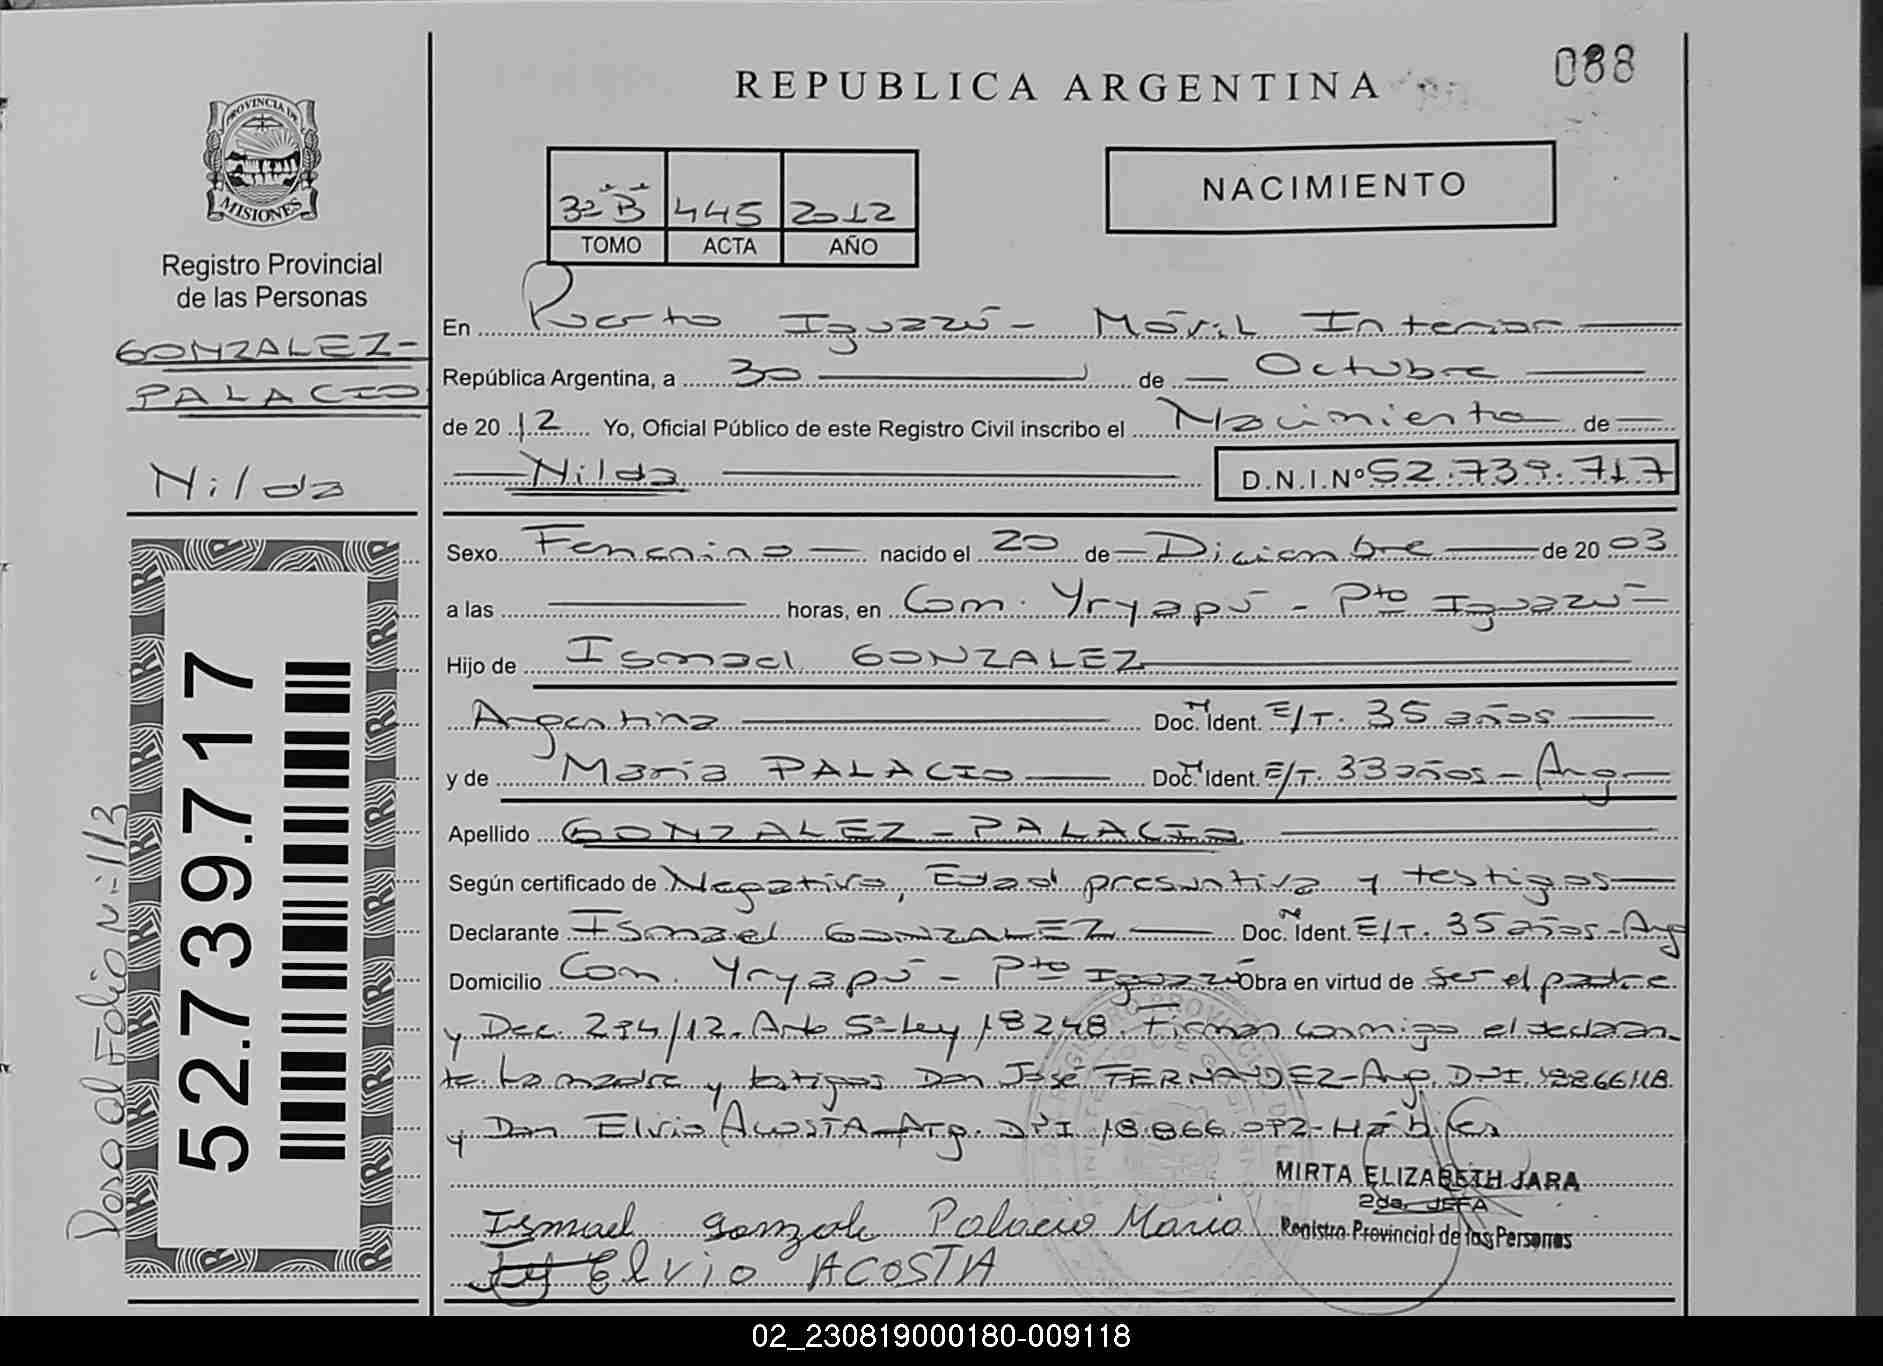 088
REPUBLICA ARGENTINA
PROVINCIA DE
MISIONES
Registro Provincial
de las Personas
GONZALEZ-
PALACIO
Nilda
52.739.717
Pasa al Folio Nº 113
445 2012
TOMO ACTA AÑO
NACIMIENTO
En Puerto Iguazú - Móvil Interior
República Argentina, a 30 de Octubre
de 2012 Yo, Oficial Público de este Registro Civil inscribo el Nacimiento de
Nilda D.N.I.Nº 52.739.717
Sexo Femenino nacido el 20 de Diciembre de 2003
a las horas, en Com. Yryapú - Pto Iguazú
Hijo de Ismael GONZALEZ
Argentina Doc. Ident. E/T. 35 años
y de María PALACIO Doc. Ident. E/T. 33 años - Arg
Apellido GONZALEZ - PALACIO
Según certificado de Negativo, Edad presuntiva y testigos
Declarante Ismael GONZALEZ Doc. Ident. E/T. 35 años - Arg
Domicilio Com. Yryapú - Pto Iguazú Obra en virtud de ser el padre
y Dec. 234/12. Arto 5º Ley 18248. Firman conmigo el declaran-
te. La madre y testigos Don José FERNANDEZ-Arg. DNI
y Don Elvio ACOSTA-Arg. DNI 18.866.072-Hábiles
MIRTA ELIZABETH JARA
2da. JEFA
Registro Provincial de las Personas
Ismael gonzale Palacio Maria
Elvio ACOSTA
02_230819000180-009118